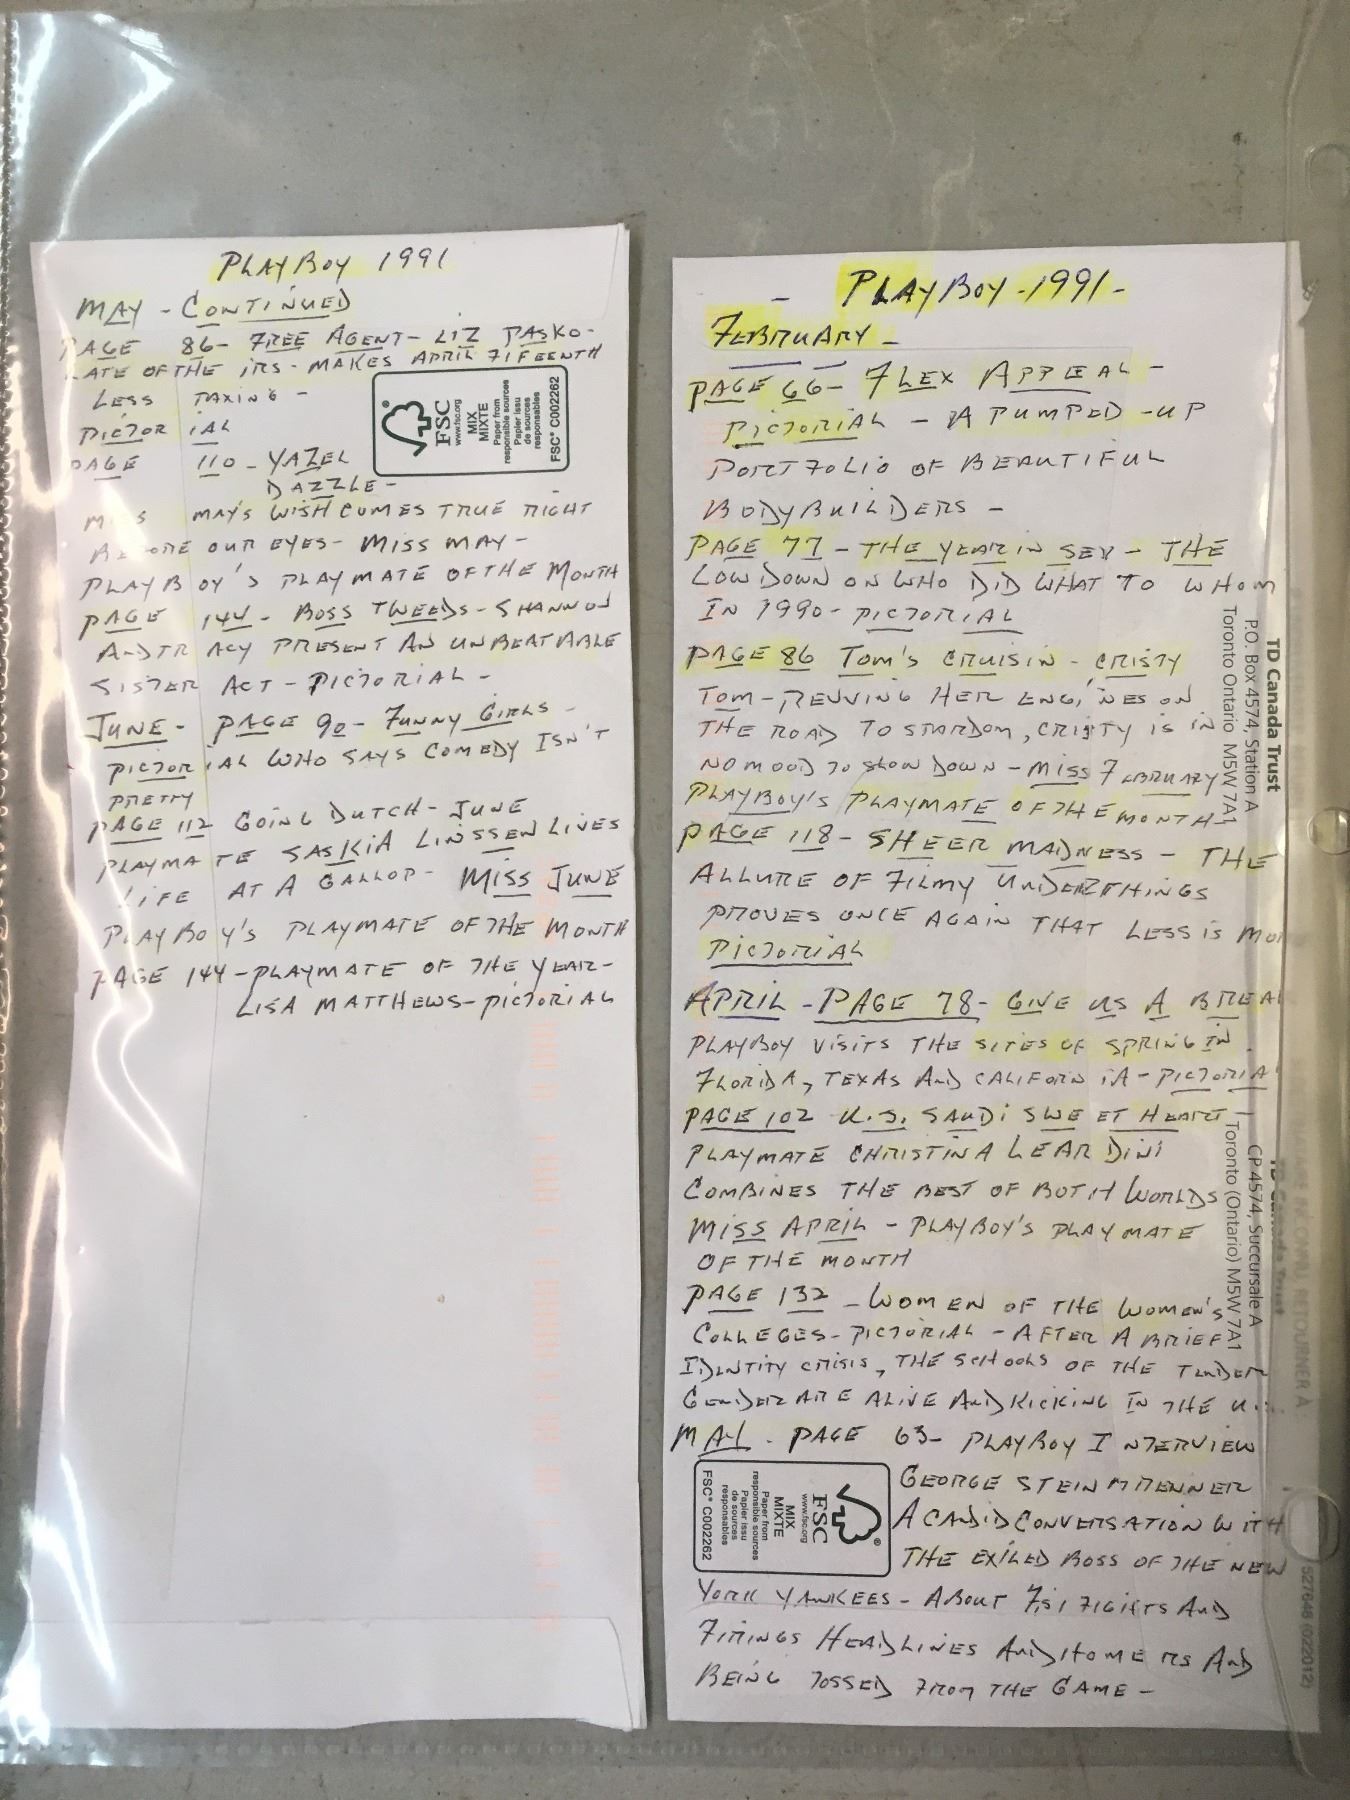 PLAYBOY 1991
MAY - CONTINUED
PAGE 86 - FREE AGENT - LIZ PASKO -
LATE OF THE IRS - MAKES APRIL FIFEENTH
LESS TAXING -
PICTORIAL
PAGE 110 - YAZEL
DAZZLE -
MISS MAY'S WISH COMES TRUE RIGHT
BEFORE OUR EYES - MISS MAY -
PLAYBOY'S PLAYMATE OF THE MONTH
PAGE 144 - BOSS TWEEDS - SHANNON
AND TRACY PRESENT AN UNBEATABLE
SISTER ACT - PICTORIAL -
JUNE - PAGE 90 - FUNNY GIRLS -
PICTORIAL WHO SAYS COMEDY ISN'T
PRETTY
PAGE 112 GOING DUTCH - JUNE
PLAYMATE SASKIA LINSSEN LIVES
LIFE AT A GALLOP - MISS JUNE
PLAYBOY'S PLAYMATE OF THE MONTH
PAGE 144 - PLAYMATE OF THE YEAR -
LISA MATTHEWS - PICTORIAL
FSC
www.fsc.org
MIX
MIXTE
Paper from
responsible sources
Papier issu
de sources
responsables
FSC® C002262
- PLAYBOY - 1991 -
FEBRUARY -
PAGE 66 - FLEX APPEAL -
PICTORIAL - A PUMPED - UP
PORTFOLIO OF BEAUTIFUL
BODYBUILDERS -
PAGE 77 - THE YEAR IN SEX - THE
LOWDOWN ON WHO DID WHAT TO WHOM
IN 1990 - PICTORIAL
PAGE 86 TOM'S CRUISIN - CRISTY
TOM - REVVING HER ENGINES ON
THE ROAD TO STARDOM, CRISTY IS IN
NO MOOD TO SLOW DOWN - MISS FEBRUARY
PLAYBOY'S PLAYMATE OF THE MONTH -
PAGE 118 - SHEER MADNESS - THE
ALLURE OF FILMY UNDERTHINGS
PROVES ONCE AGAIN THAT LESS IS MOR
PICTORIAL
APRIL - PAGE 78 - GIVE US A BREA
PLAYBOY VISITS THE SITES OF SPRING IN
FLORIDA, TEXAS AND CALIFORNIA - PICTORIA
PAGE 102 U.S. SAUDI SWEET HEART -
PLAYMATE CHRISTINA LEARDINI
COMBINES THE BEST OF BOTH WORLDS
MISS APRIL - PLAYBOY'S PLAYMATE
OF THE MONTH
PAGE 132 - WOMEN OF THE WOMEN'S
COLLEGES - PICTORIAL - AFTER A BRIEF
IDENTITY CRISIS, THE SCHOOLS OF THE TENDER
GENDER ARE ALIVE AND KICKING IN THE U.
MAY - PAGE 63 - PLAYBOY INTERVIEW
GEORGE STEINBRENNER
A CANDID CONVERSATION WITH
THE EXILED BOSS OF THE NEW
YORK YANKEES - ABOUT FIGHTS AND
FIRINGS HEADLINES AND HOMERS AND
BEING TOSSED FROM THE GAME -
FSC
www.fsc.org
MIX
MIXTE
Paper from
responsible sources
Papier issu
de sources
responsables
FSC® C002262
TD Canada Trust
P.O. Box 4574, Station A
Toronto Ontario M5W 7A1
TD Canada Trust
CP 4574, Succursale A
Toronto (Ontario) M5W 7A1
RETOURNER À :
527648 (022012)